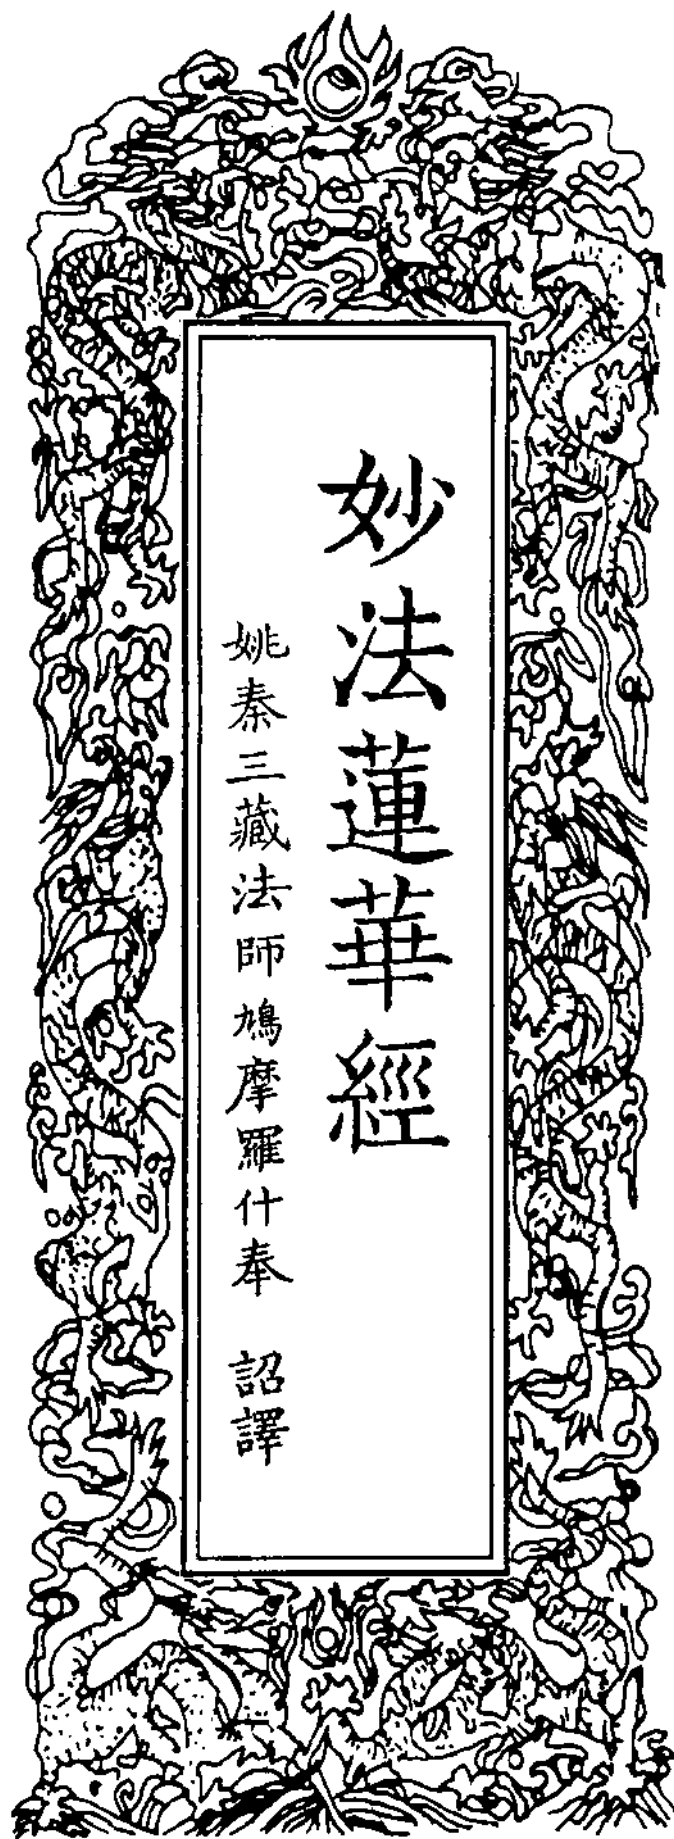 妙法蓮華經
姚秦三藏法師鳩摩羅什奉　詔譯